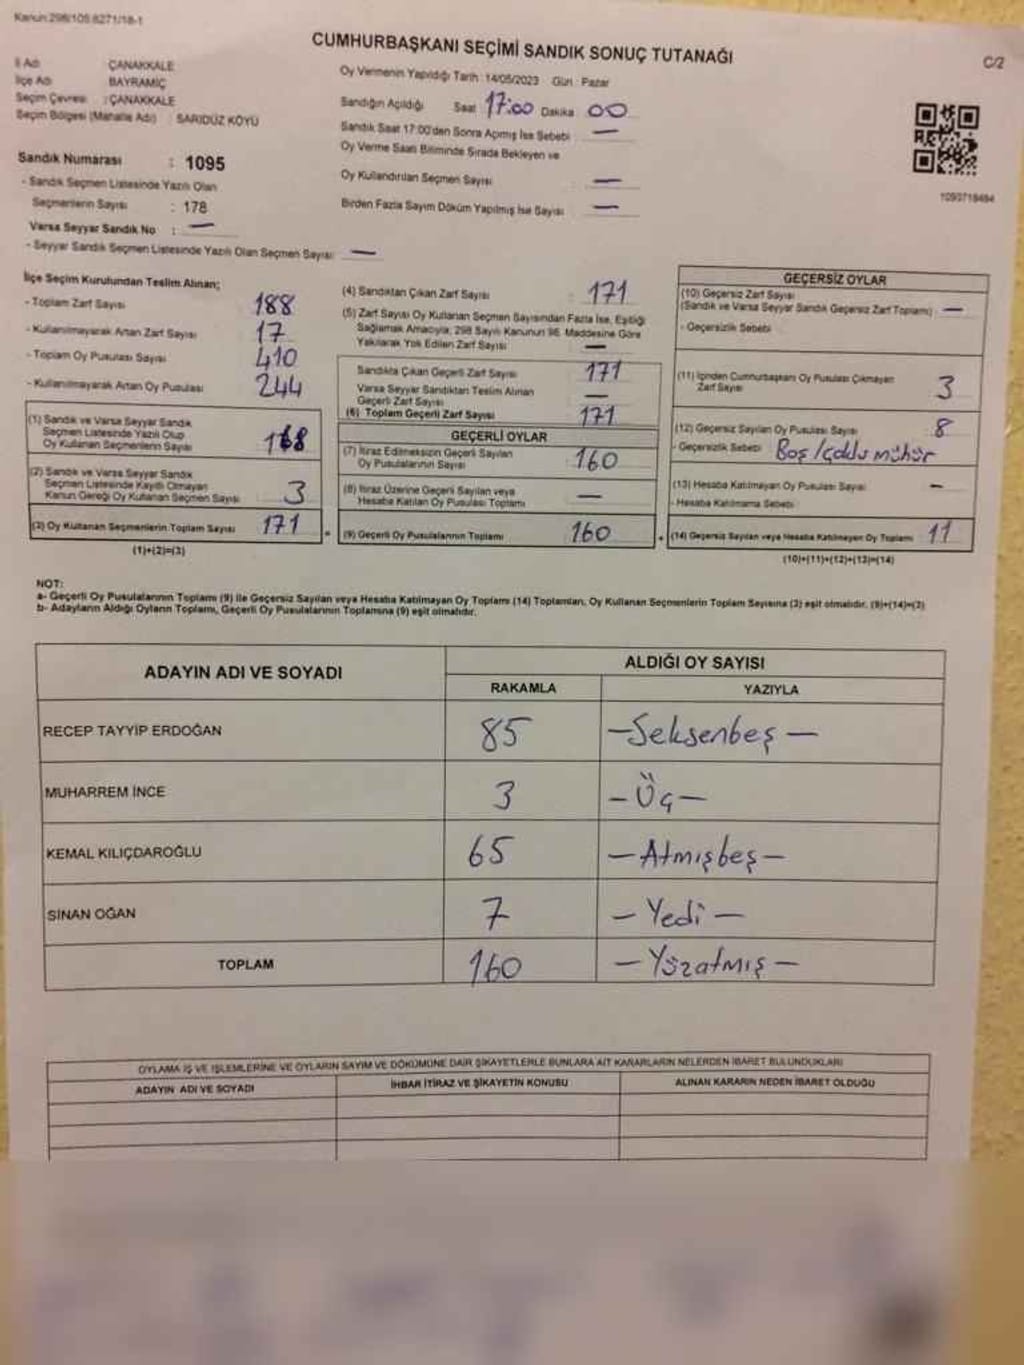 Kanun:298/105.6271/18-1
CUMHURBAŞKANI SEÇİMİ SANDIK SONUÇ TUTANAĞI
C/2
İl Adı : ÇANAKKALE
İlçe Adı : BAYRAMİÇ
Seçim Çevresi : ÇANAKKALE
Seçim Bölgesi (Mahalle Adı) : SARIDÜZ KÖYÜ
Sandık Numarası : 1095
- Sandık Seçmen Listesinde Yazılı Olan
Seçmenlerin Sayısı : 178
Varsa Seyyar Sandık No : —
- Seyyar Sandık Seçmen Listesinde Yazılı Olan Seçmen Sayısı: —
Oy Vermenin Yapıldığı Tarih : 14/05/2023 Gün : Pazar
Sandığın Açıldığı Saat 17:00 Dakika 00
Sandık Saat 17:00'den Sonra Açılmış İse Sebebi : —
Oy Verme Saati Bitiminde Sırada Bekleyen ve
Oy Kullandırılan Seçmen Sayısı : —
Birden Fazla Sayım Döküm Yapılmış İse Sayısı : —
1090718484
İlçe Seçim Kurulundan Teslim Alınan;
- Toplam Zarf Sayısı 188
- Kullanılmayarak Artan Zarf Sayısı 17
- Toplam Oy Pusulası Sayısı 410
- Kullanılmayarak Artan Oy Pusulası 244
(1) Sandık ve Varsa Seyyar Sandık
Seçmen Listesinde Yazılı Olup
Oy Kullanan Seçmenlerin Sayısı 168
(2) Sandık ve Varsa Seyyar Sandık
Seçmen Listesinde Kayıtlı Olmayan
Kanun Gereği Oy Kullanan Seçmen Sayısı 3
(3) Oy Kullanan Seçmenlerin Toplam Sayısı 171
(1)+(2)=(3)
(4) Sandıktan Çıkan Zarf Sayısı : 171
(5) Zarf Sayısı Oy Kullanan Seçmen Sayısından Fazla İse, Eşitliği
Sağlamak Amacıyla; 298 Sayılı Kanunun 98. Maddesine Göre
Yakılarak Yok Edilen Zarf Sayısı —
Sandıkta Çıkan Geçerli Zarf Sayısı 171
Varsa Seyyar Sandıktan Teslim Alınan
Geçerli Zarf Sayısı —
(6) Toplam Geçerli Zarf Sayısı 171
GEÇERLİ OYLAR
(7) İtiraz Edilmeksizin Geçerli Sayılan
Oy Pusulalarının Sayısı 160
(8) İtiraz Üzerine Geçerli Sayılan veya
Hesaba Katılan Oy Pusulası Toplamı —
(9) Geçerli Oy Pusulalarının Toplamı 160
GEÇERSİZ OYLAR
(10) Geçersiz Zarf Sayısı
(Sandık ve Varsa Seyyar Sandık Geçersiz Zarf Toplamı) —
- Geçersizlik Sebebi
(11) İçinden Cumhurbaşkanı Oy Pusulası Çıkmayan
Zarf Sayısı 3
(12) Geçersiz Sayılan Oy Pusulası Sayısı 8
- Geçersizlik Sebebi Boş/çoklu mühür
(13) Hesaba Katılmayan Oy Pusulası Sayısı —
- Hesaba Katılmama Sebebi
(14) Geçersiz Sayılan veya Hesaba Katılmayan Oy Toplamı 11
(10)+(11)+(12)+(13)=(14)
NOT:
a- Geçerli Oy Pusulalarının Toplamı (9) ile Geçersiz Sayılan veya Hesaba Katılmayan Oy Toplamı (14) Toplamları, Oy Kullanan Seçmenlerin Toplam Sayısına (3) eşit olmalıdır. (9)+(14)=(3)
b- Adayların Aldığı Oyların Toplamı, Geçerli Oy Pusulalarının Toplamına (9) eşit olmalıdır.
ADAYIN ADI VE SOYADI
ALDIĞI OY SAYISI
RAKAMLA YAZIYLA
RECEP TAYYİP ERDOĞAN 85 —Seksenbeş—
MUHARREM İNCE 3 —Üç—
KEMAL KILIÇDAROĞLU 65 —Atmışbeş—
SİNAN OĞAN 7 —Yedi—
TOPLAM 160 —Yüzatmış—
OYLAMA İŞ VE İŞLEMLERİNE VE OYLARIN SAYIM VE DÖKÜMÜNE DAİR ŞİKAYETLERLE BUNLARA AİT KARARLARIN NELERDEN İBARET BULUNDUKLARI
ADAYIN ADI VE SOYADI İHBAR İTİRAZ VE ŞİKAYETİN KONUSU ALINAN KARARIN NEDEN İBARET OLDUĞU